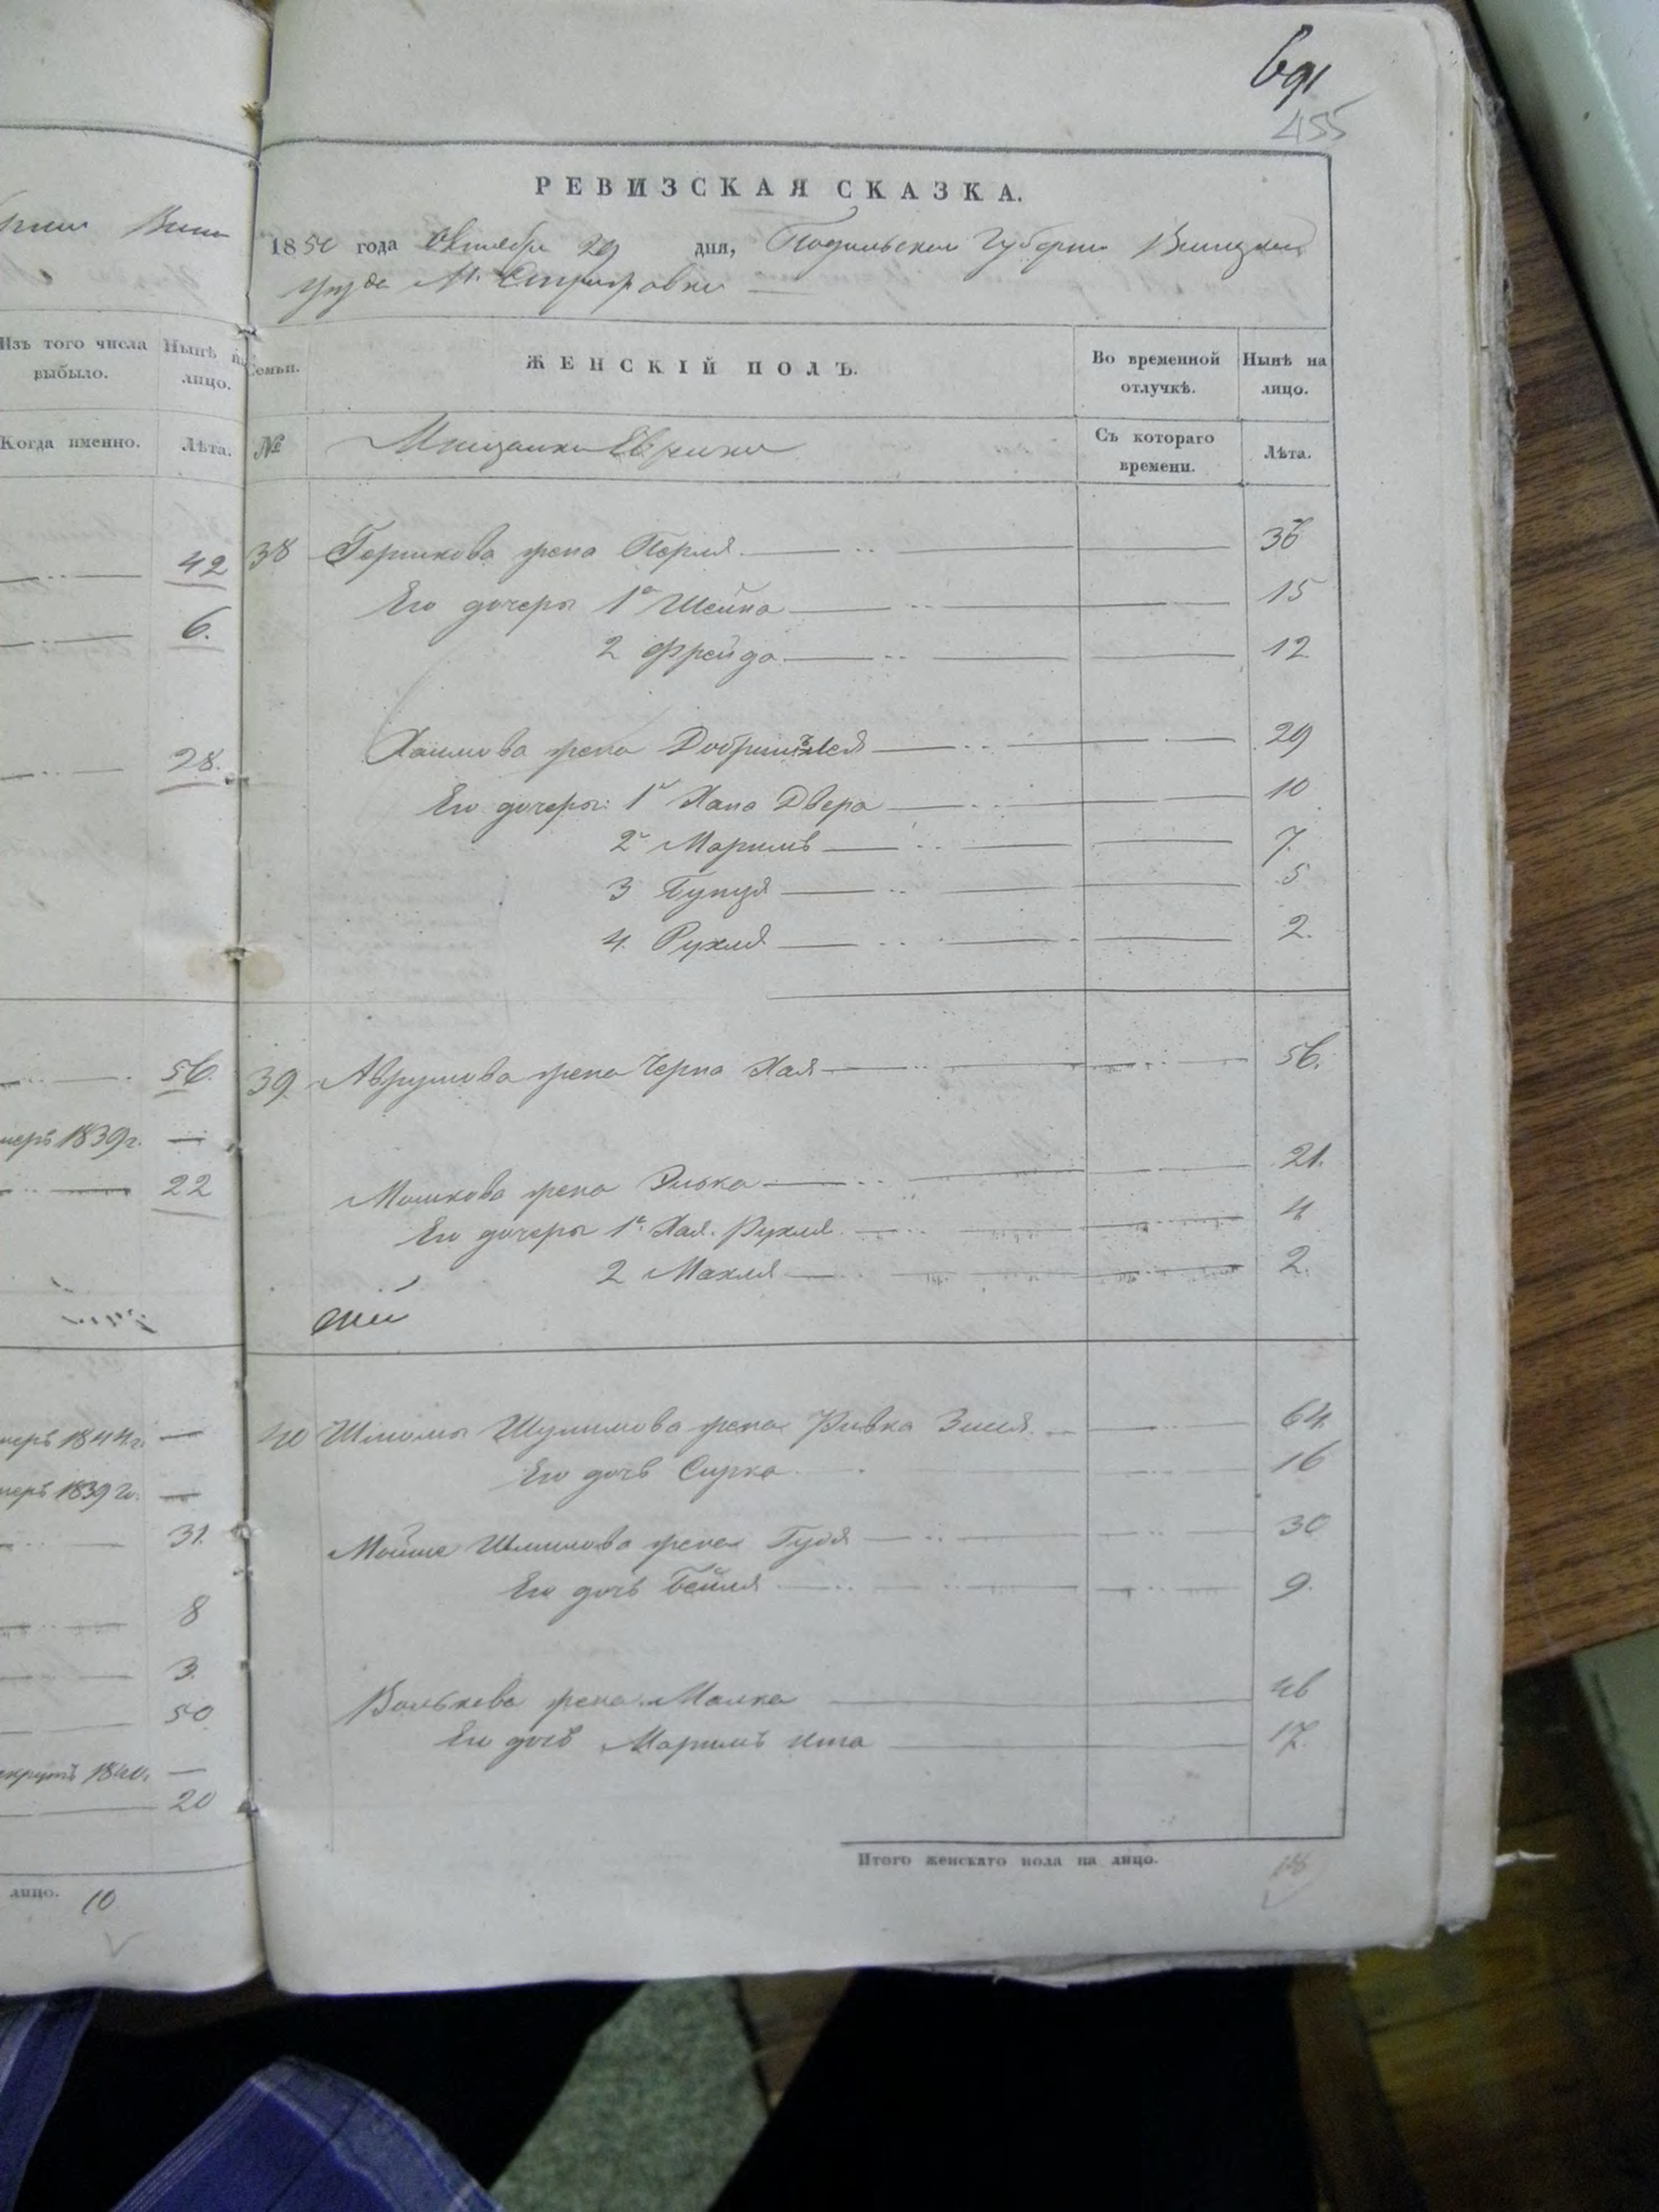 691
455
РЕВИЗСКАЯ СКАЗКА.
1850 года Октября 29 дня, Подольской Губернии Виницкаго
уезда М.
Изъ того числа выбыло.
Нынѣ на лицо.
Когда именно.
Лѣта.
42
6.
28.
56.
1839 г. —
22
1844 г. —
1839 го. —
31.
8
3.
50
1840. —
20
лицо. 10
Семьи.
ЖЕНСКІЙ ПОЛЪ.
Во временной отлучкѣ.
Нынѣ на лицо.
№
Мещанки Евреики
Съ котораго времени.
Лѣта.
38 Гершкова жена Перля 36
Его дочери 1я Шейна 15
2 Фрейда 12
Хаимова жена 29
Его дочери: 1я Хана Двера 10
2я Маримъ 7.
3 Бунця 5
4. Рухля 2.
39. Аврумова жена Черна Хая 56.
Мошкова жена Элька 21.
Его дочери 1я Хая Рухля 4
2 Махля 2.
40 Шломы Шулимова жена Ривка Зисля 64.
Его дочь Сурка 16
Мойше Шлиомова жена Гудя 30
Его дочь Бейля 9.
Волькова жена Малка 46
Его дочь Маримъ Ита 17.
Итого женскаго пола на лицо. 18